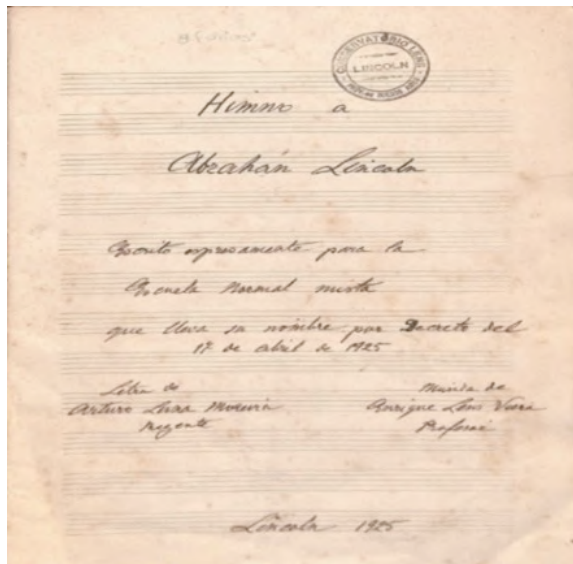 CONSERVATORIO LENS
LINCOLN
Himno a
Abrahán Lincoln
Escrito expresamente para la
Escuela Normal mista
que lleva su nombre por Decreto del
17 de abril de 1925
Letra de
Arturo
Regente
Música de
Enrique Lens Viera
Profesor
Lincoln 1925